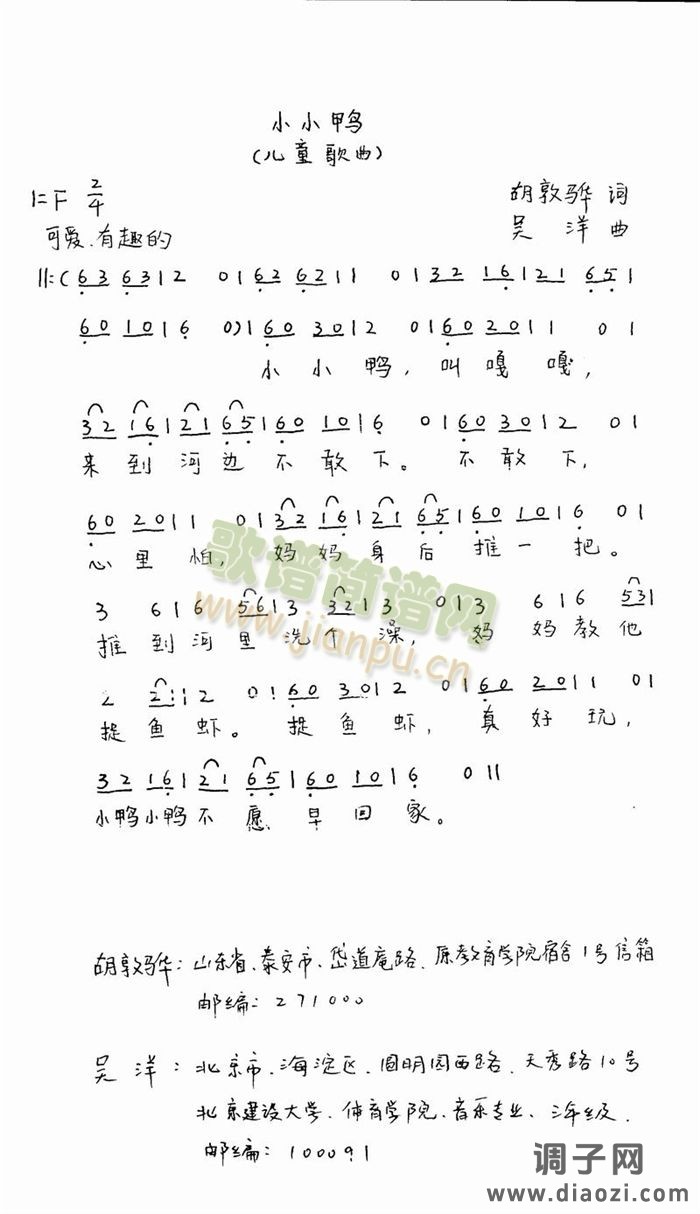 小小鸭
(儿童歌曲)
1=F 2/4
胡敦骅 词
可爱、有趣的
吴 洋 曲
‖:( 63 63 | 2 0 | 62 62 | 1 0 | 32 16 | 21 65 |
60 10 | 6 0) | 60 30 | 2 0 | 60 20 | 1 0 |
小 小 鸭, 叫 嘎 嘎,
32 16 | 21 65 | 60 10 | 6 0 | 60 30 | 2 0 |
来 到 河 边 不 敢 下。 不 敢 下,
60 20 | 1 0 | 32 16 | 21 65 | 60 10 | 6 0 |
心 里 怕, 妈 妈 身 后 推 一 把。
3 6 | 6 56 | 3 32 | 3 0 | 3 6 | 6 53 |
推 到 河 里 洗 个 澡, 妈 妈 教 他
2 21 | 2 0 | 60 30 | 2 0 | 60 20 | 1 0 |
捉 鱼 虾。 捉 鱼 虾, 真 好 玩,
32 16 | 21 65 | 60 10 | 6 0 ‖
小鸭小鸭不 愿 早 回 家。
歌谱简谱网
www.jianpu.cn
胡敦骅: 山东省、泰安市、岱道庵路、原教育学院宿舍1号信箱
邮编: 271000
吴 洋: 北京市、海淀区、圆明园西路、天秀路10号
北京建设大学、体育学院、音乐专业、三年级、
邮编: 100091
调子网
www.diaozi.com